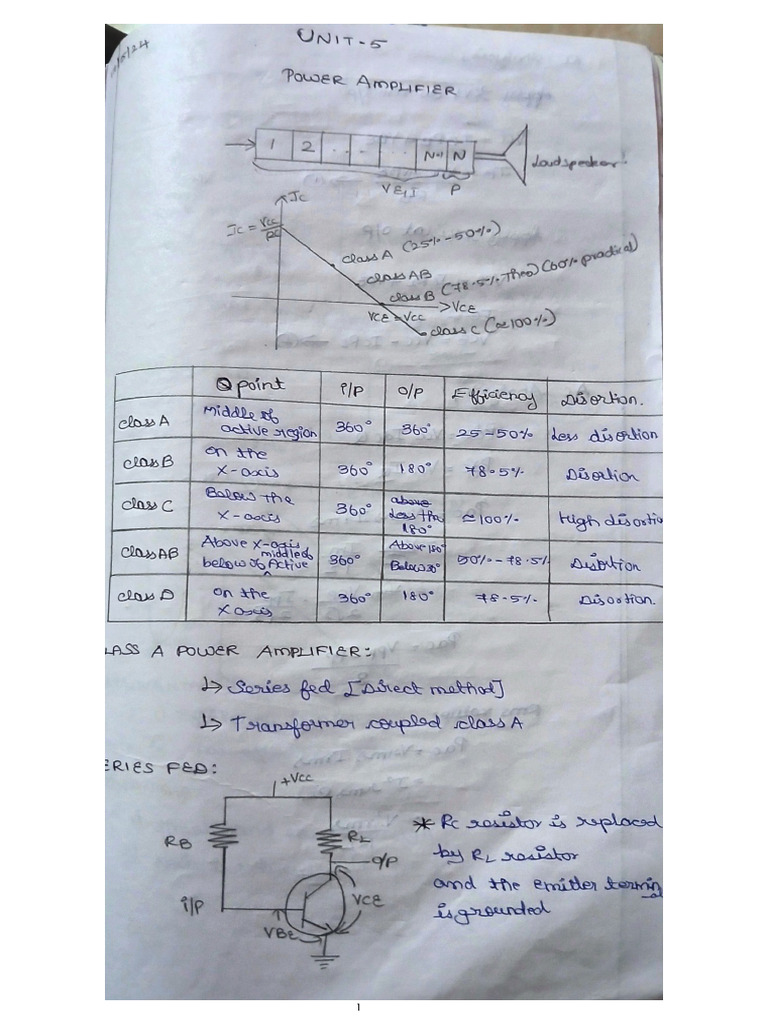 UNIT-5
POWER AMPLIFIER
1 2 .. - .. N-1 N
Loudspeaker
VE,I P
IC
IC = VCC/RC
class A (25% - 50%)
class AB
class B (78.5% Theo) (60% practical)
VCE
VCE = VCC
class C (≃100%)
Q point i/P O/P Efficiency Disortion.
class A Middle of active region 360° 360° 25-50% Less distortion
class B on the x-axis 360° 180° 78.5% Disortion
class C Below the x-axis 360° above Less tha 180° ≃100% High disortio
class AB Above x-axis below of middle of Active 360° Above 180° 50% - 78.5% Distortion
class D on the x axis 360° 180° 78.5% Disortion.
LASS A POWER AMPLIFIER:
↳ Series fed [Direct method]
↳ Transformer coupled class A
ERIES FED:
+VCC
RB RL
O/P
i/P
VCE
VBE
* RC resistor is replaced
by RL resistor
and the emitter termin
is grounded
1